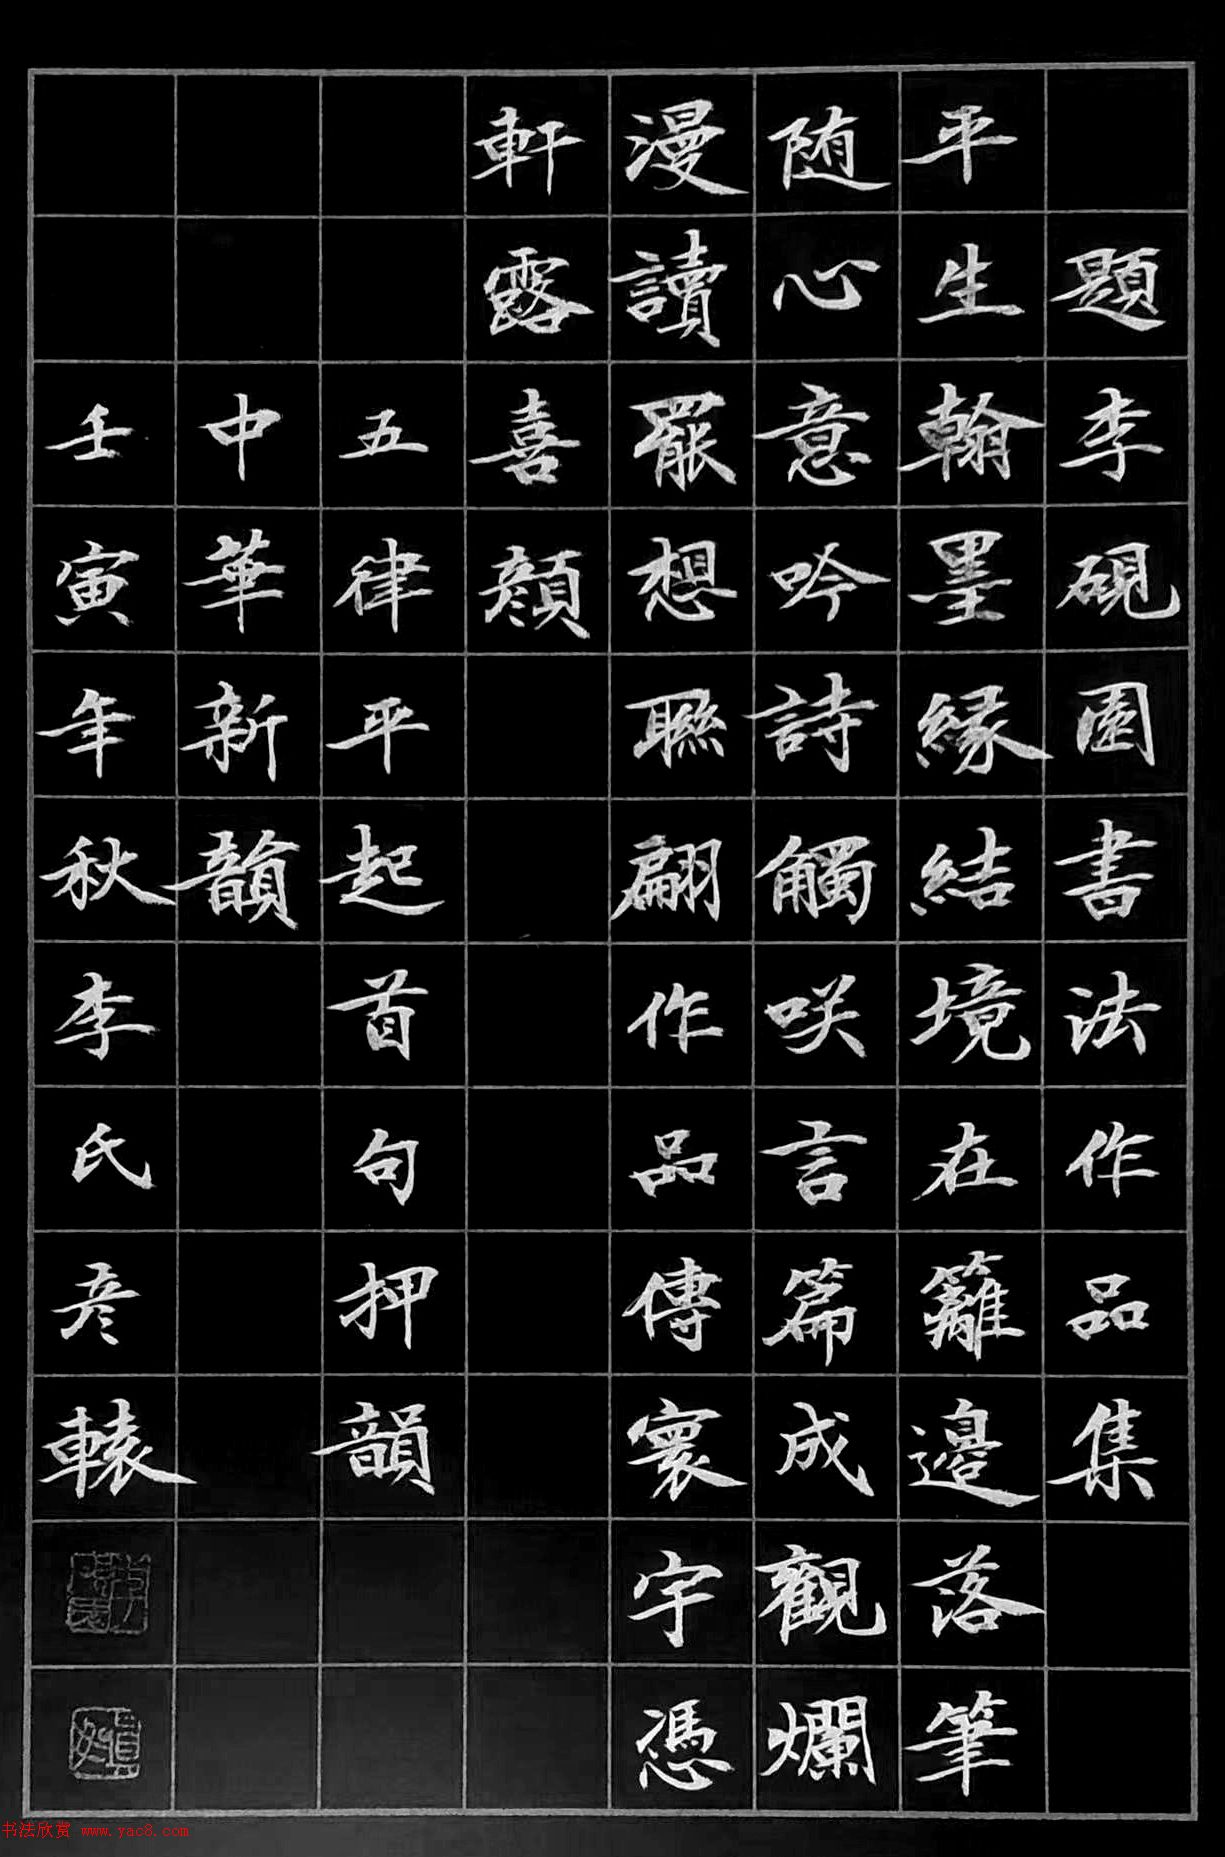 題李硯園書法作品集
平生翰墨緣結境在籬邊落筆
随心意吟詩觸咲言篇成觀爛
漫讀罷想聯翩作品傳寰宇憑
軒露喜顔
五律平起首句押韻
中華新韻
壬寅年秋李氏彦轅
书法欣赏 www.yac8.com